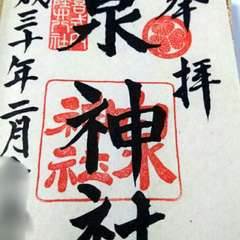 奉拝
泉神社
泉神社
成三十年二月